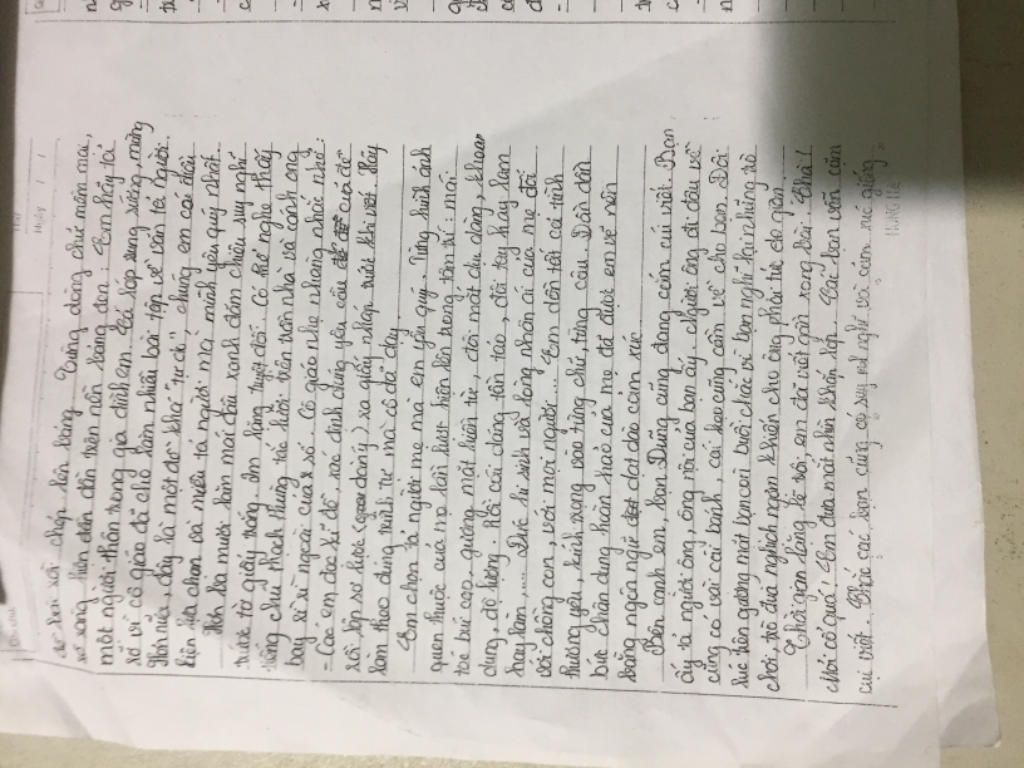 cô loay xoay chép lên bảng. Từng dòng chữ mềm mại,
sẽ sàng hiện dần trên nền bảng đen: Em hãy tả
một người thân trong gia đình em. Cả lớp sung sướng, mừng
rỡ vì cô giáo đã cho làm nhiều bài tập về văn tả người.
Hơn nữa, đây là một đề khá "tự do", chúng em có điều
kiện lựa chọn và miêu tả người mà mình yêu quý nhất.
Mới ba mươi lăm mái đầu xanh đăm chiêu suy nghĩ
trước tờ giấy trắng. Im lặng tuyệt đối. Có thể nghe thấy
tiếng chú thạch thùng tắc lưỡi trên trần nhà và cánh ong
bay rì rì ngoài cửa sổ. Cô giáo nhẹ nhàng nhắc nhở:
- Các em đọc kĩ đề, xác định đúng yêu cầu của đề
rồi lập sơ lược (dàn ý) ra giấy nháp trước khi viết. Hãy
làm theo đúng trình tự mà cô đã dạy.
Em chọn tả người mẹ mà em yêu quý. Từng hình ảnh
quen thuộc của mẹ lần lượt hiện lên trong tâm trí: mái
tóc búi cao, gương mặt hiền từ, đôi mắt dịu dàng, khoan
dung, độ lượng. Rồi cả dáng tần tảo, đôi tay hay lam
hay làm, .... Đức hi sinh và lòng nhân ái của mẹ đối
với chồng con, với mọi người... Em dồn tất cả tình
thương yêu, kính trọng vào từng chữ, từng câu. Dần dần
bức chân dung hoàn hảo của mẹ đã được em vẽ nên
bằng ngôn ngữ dạt dào cảm xúc.
Bên cạnh em, bạn Dũng cũng đang cắm cúi viết. Bạn
ấy tả người ông, ông nội của bạn ấy. Người ông đi đâu về
cũng có vài cái bánh, cái kẹo cũng cầm về cho bạn. Đôi
lúc trên gương mặt bạn cười buồi chắc vì bạn nghĩ lại những trò
chơi, trò đùa nghịch ngợm khiến cho ông phải tức do giận.
Thời gian lặng lẽ trôi, em đã viết gần xong bài. Chà!
Mỏi cổ quá! Em đưa mắt nhìn khắp lớp. Các bạn vẫn cắm
cúi viết. Chắc các bạn cũng có suy nghĩ và cảm xúc giống